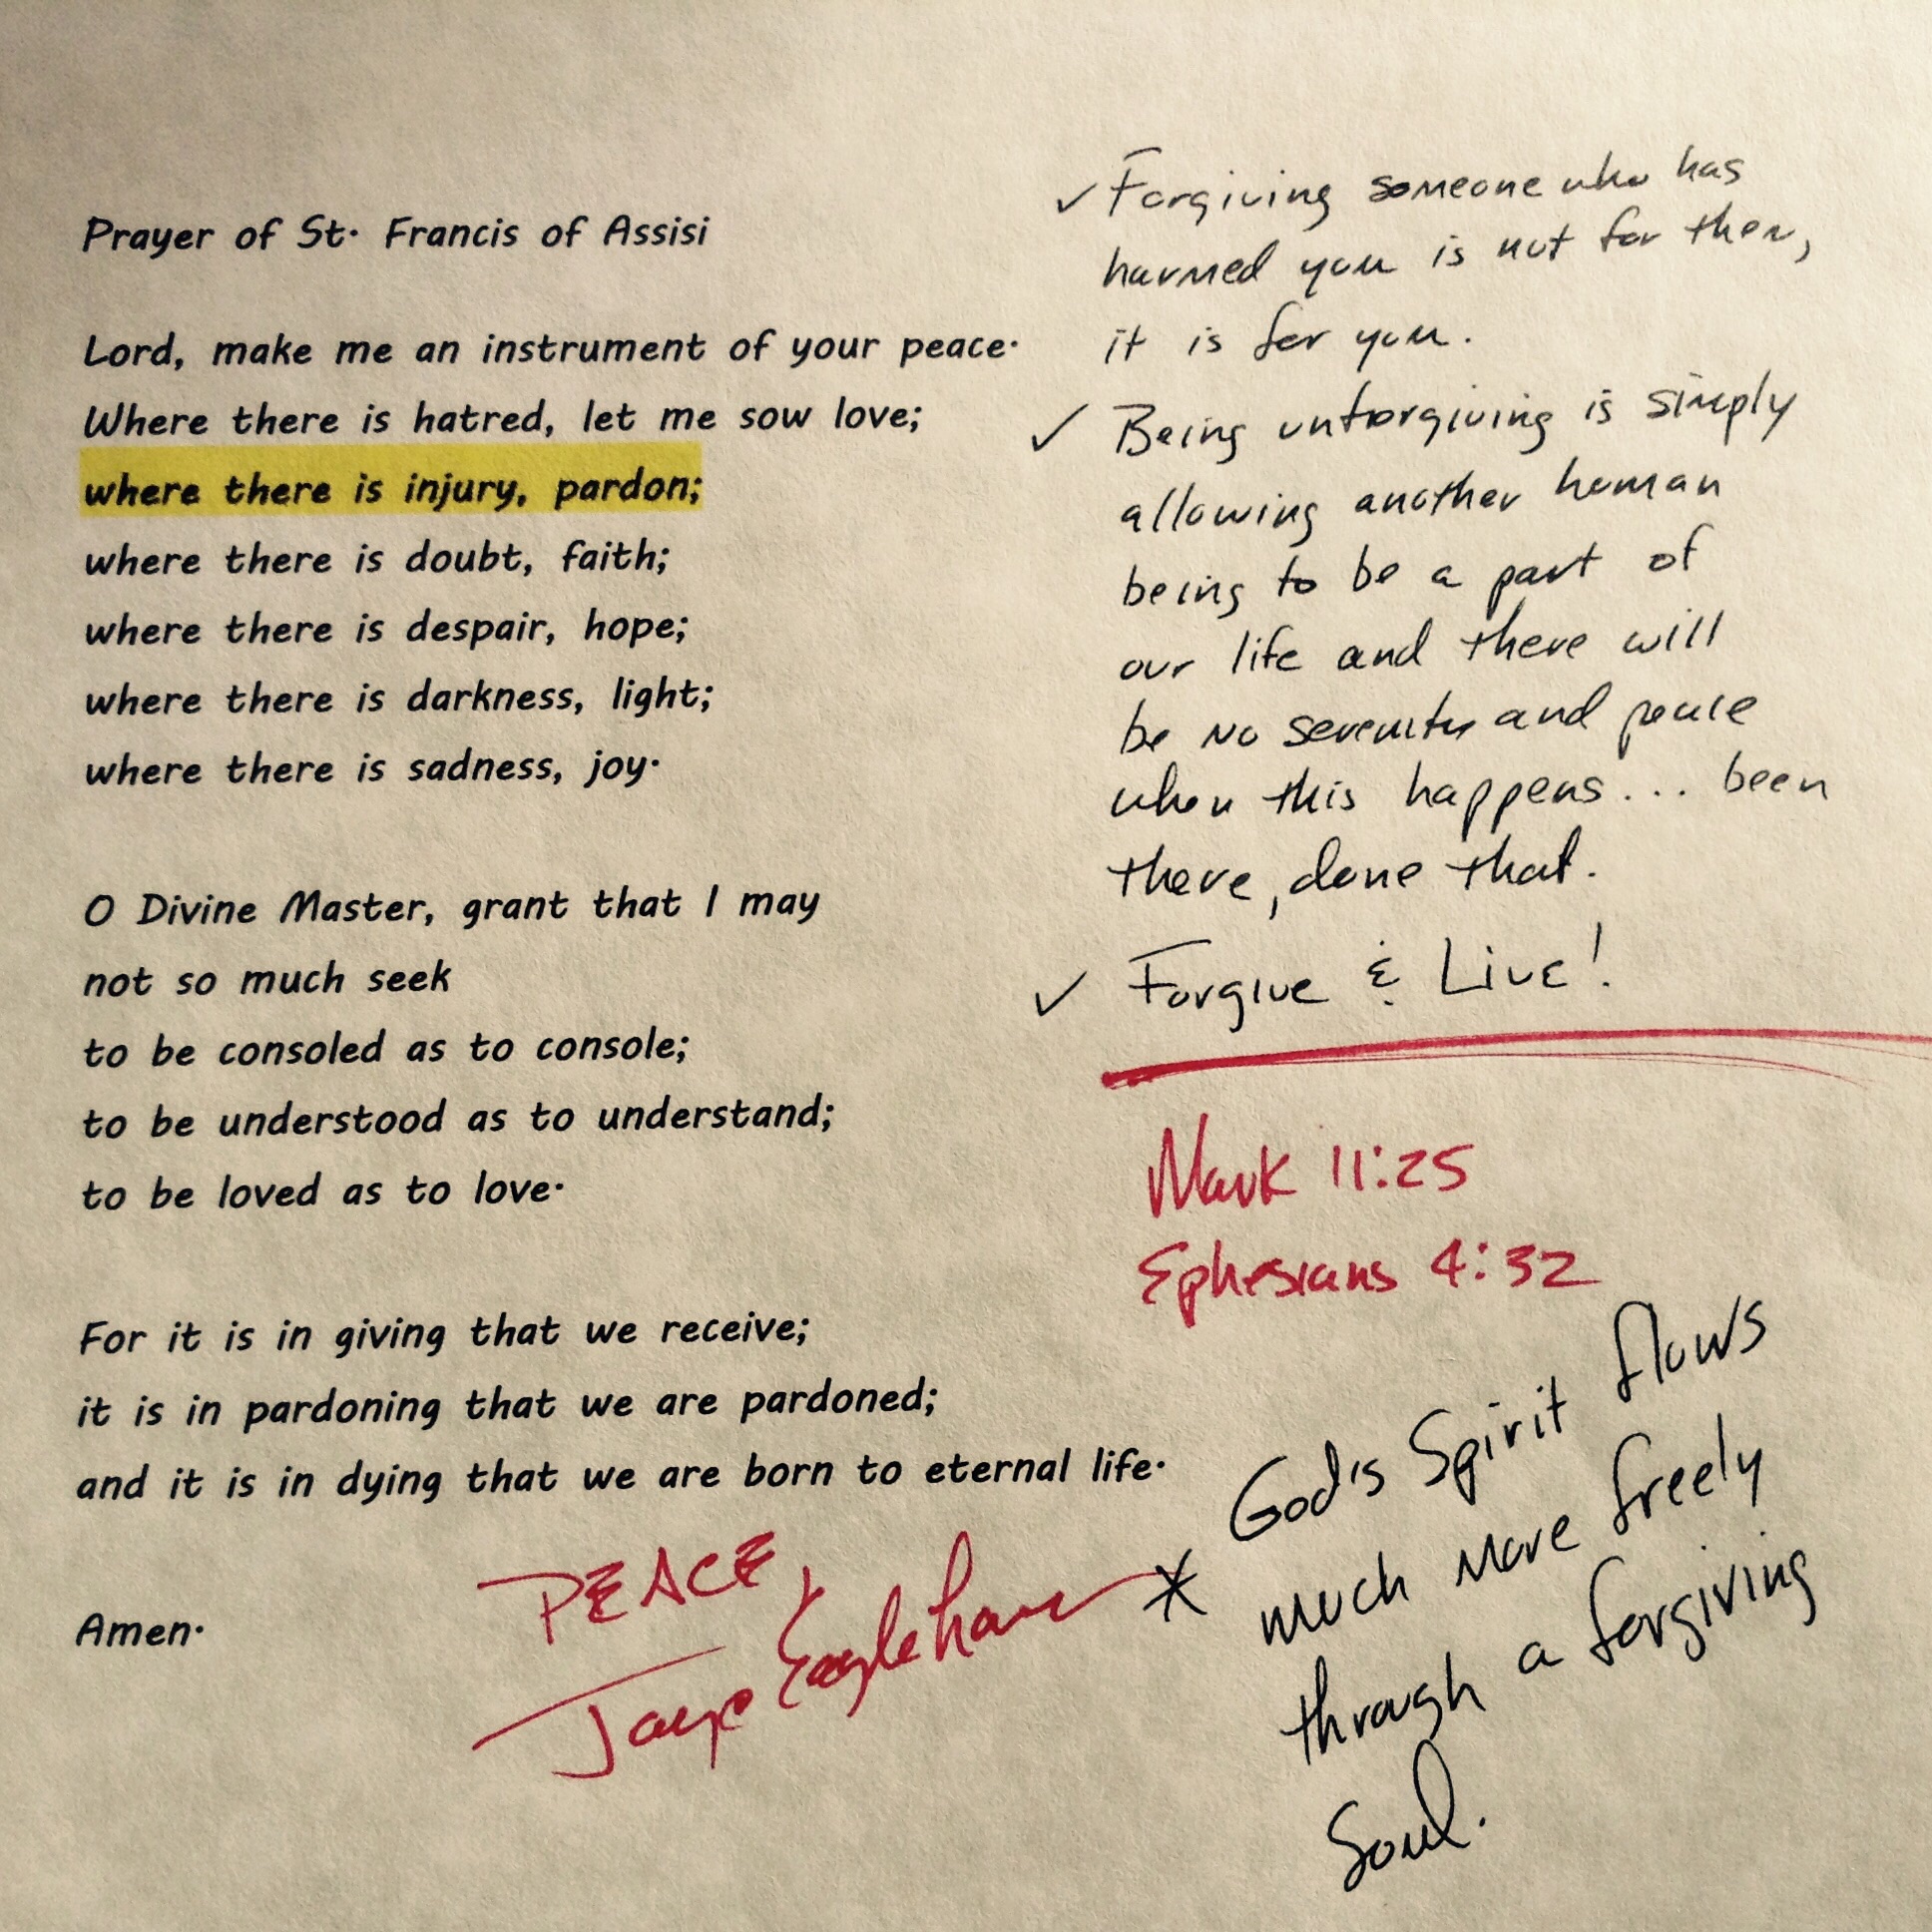 Prayer of St. Francis of Assisi
Lord, make me an instrument of your peace.
Where there is hatred, let me sow love;
where there is injury, pardon;
where there is doubt, faith;
where there is despair, hope;
where there is darkness, light;
where there is sadness, joy.
O Divine Master, grant that I may
not so much seek
to be consoled as to console;
to be understood as to understand;
to be loved as to love.
For it is in giving that we receive;
it is in pardoning that we are pardoned;
and it is in dying that we are born to eternal life.
Amen.
PEACE,
✓ Forgiving someone who has
harmed you is not for them,
it is for you.
✓ Being unforgiving is simply
allowing another human
being to be a part of
our life and there will
be no serenity and peace
when this happens... been
there, done that.
✓ Forgive & Live!
Mark 11:25
Ephesians 4:32
* God's Spirit flows
much more freely
through a forgiving
Soul.